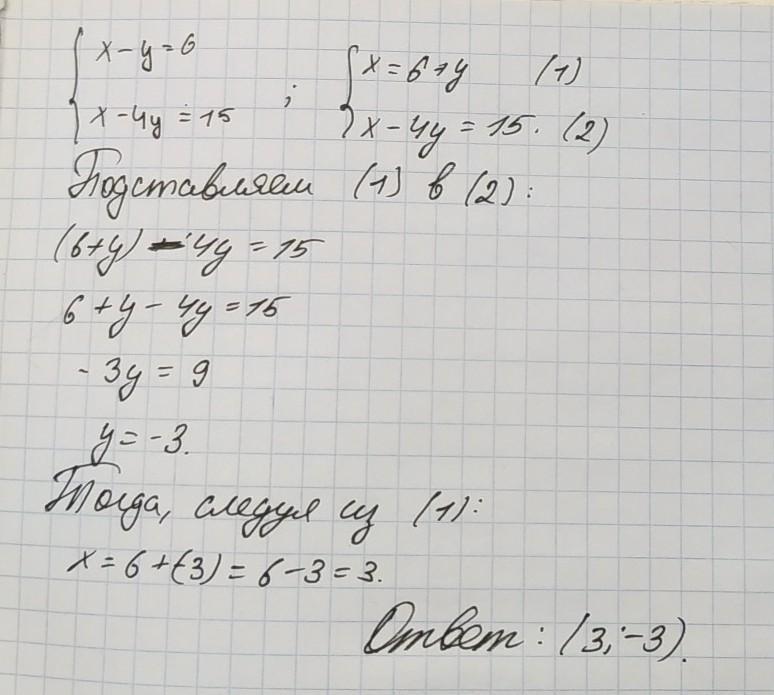 x - y = 6
x - 4y = 15 ;
x = 6 + y (1)
x - 4y = 15. (2)
Подставляем (1) в (2):
(6+y) - 4y = 15
6 + y - 4y = 15
- 3y = 9
y = -3.
Тогда, следуя из (1):
x = 6 + (-3) = 6 - 3 = 3.
Ответ: (3; -3).